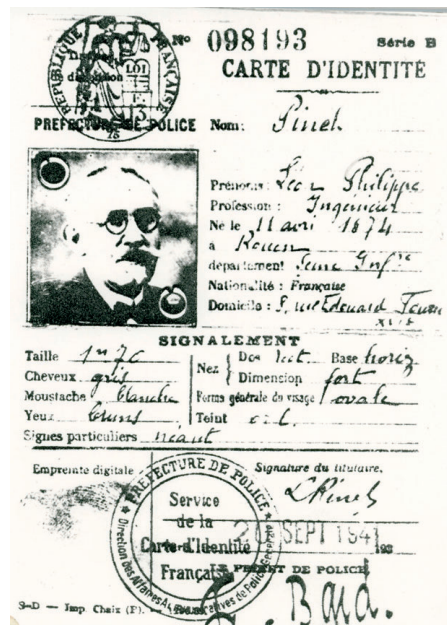 RÉPUBLIQUE FRANÇAISE
No 098193 Série B
CARTE D'IDENTITÉ
PREFECTURE DE POLICE
Nom: Pinel
Prénoms: Léon Philippe
Profession: Ingénieur
Né le 11 avril 1874
à Rouen
département Seine Infre
Nationalité: Française
Domicile: rue Edouard
XVIe
SIGNALEMENT
Taille 1m 70
Cheveux gris
Moustache blanche
Yeux bruns
Signes particuliers néant
Nez { Dos rect. Base horiz
Dimension fort
Forme générale du visage ovale
Teint
Empreinte digitale
Signature du titulaire,
LPinel
PREFECTURE DE POLICE
Service
de la
Carte d'Identité
Française
Direction des Affaires Administratives de Police Générale
SEPT 1941
193
PREFET DE POLICE
S-D — Imp. Chaix (P).